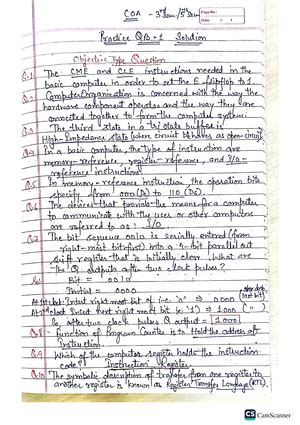 COA - 3rd Sem/5th Sem
Date :
Practice Q/B-1 Solution
Objective Type Question
Q.1 The CME and CLE instructions needed in the
basic computer in order to set the E flipflop to 1.
Q.2 Computer Organization is concerned with the way the
hardware component operates and the way they are
connected together to form the computer system.
Q.3 The third state in a tri state buffer is
High-Impedance state where circuit behaves as open-circuit.
Q.4 In a basic computer, the type of instruction are
memory-reference, register-reference, and I/O-
reference instructions.
Q.5 In memory-reference instruction, the operation bits
specify from 000 (D0) to 110 (D6).
Q.6 The devices that provide the means for a computer
to communicate with the user or other computers
are referred to as : I/O
Q.7 The bit sequence 0010 is serially entered (from
right-most bit first) into a 4-bit parallel out
shift register that is initially clear. What are
the Q outputs after two clock pulses?
Bit = 0010
Initial = 0000
At 1st clock: Insert right most bit of i.e. '0' ⇒ 0000
At 2nd clock Insert next right most bit i.e. '1') ⇒ 1000
So after two clock pulses Q output = 1000
Q.8 function of Program Counter is to Hold the address of
Instruction
Q.9 Which of the computer register holds the instruction
code? Instruction Register
Q.10 The symbolic description of transfer from one register to
another register is known as Register Transfer Language (RTL).
CS CamScanner